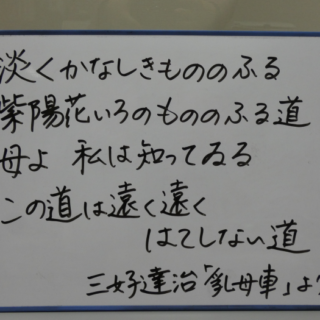 淡くかなしきもののふる
紫陽花いろのもののふる道
母よ 私は知ってゐる
この道は遠く遠く
はてしない道
三好達治「乳母車」より